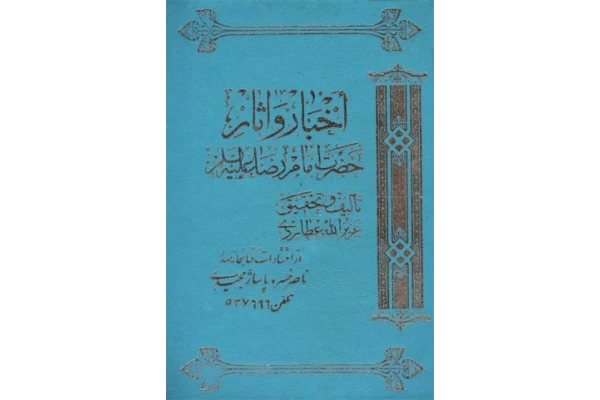 أخبار و آثار
حضرت امام رضا علیه السلام
تألیف و تحقیق
عزیز الله عطاردی
از انتشارات کتابخانه صدر
ناصر خسرو پاساژ مجیدی
تلفن ۵۳۷۶۹۶